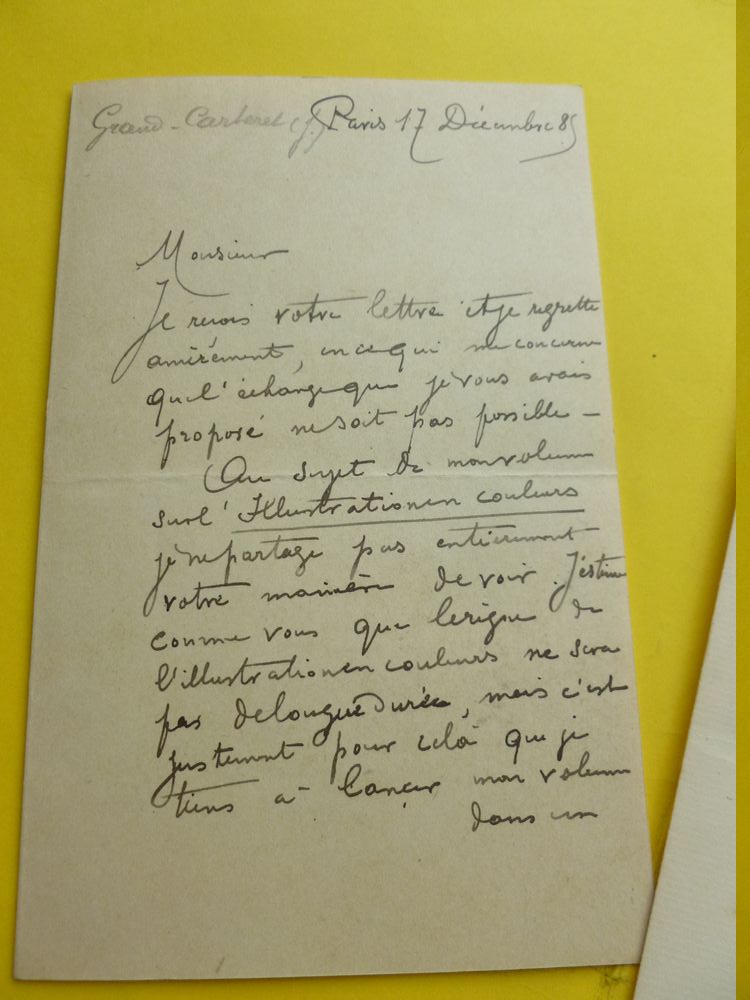 Grand-Carteret (J) Paris 17 Décembre 85
Monsieur
Je reçois votre lettre et je regrette
amèrement, en ce qui me concerne
que l'échange que je vous avais
proposé ne soit pas possible –
Au sujet de mon volume
sur l'Illustration en couleurs
je ne partage pas entièrement
votre manière de voir. J'estime
comme vous que le règne de
l'illustration en couleurs ne sera
pas de longue durée, mais c'est
justement pour celà que je
tiens à lancer mon volume
dans un